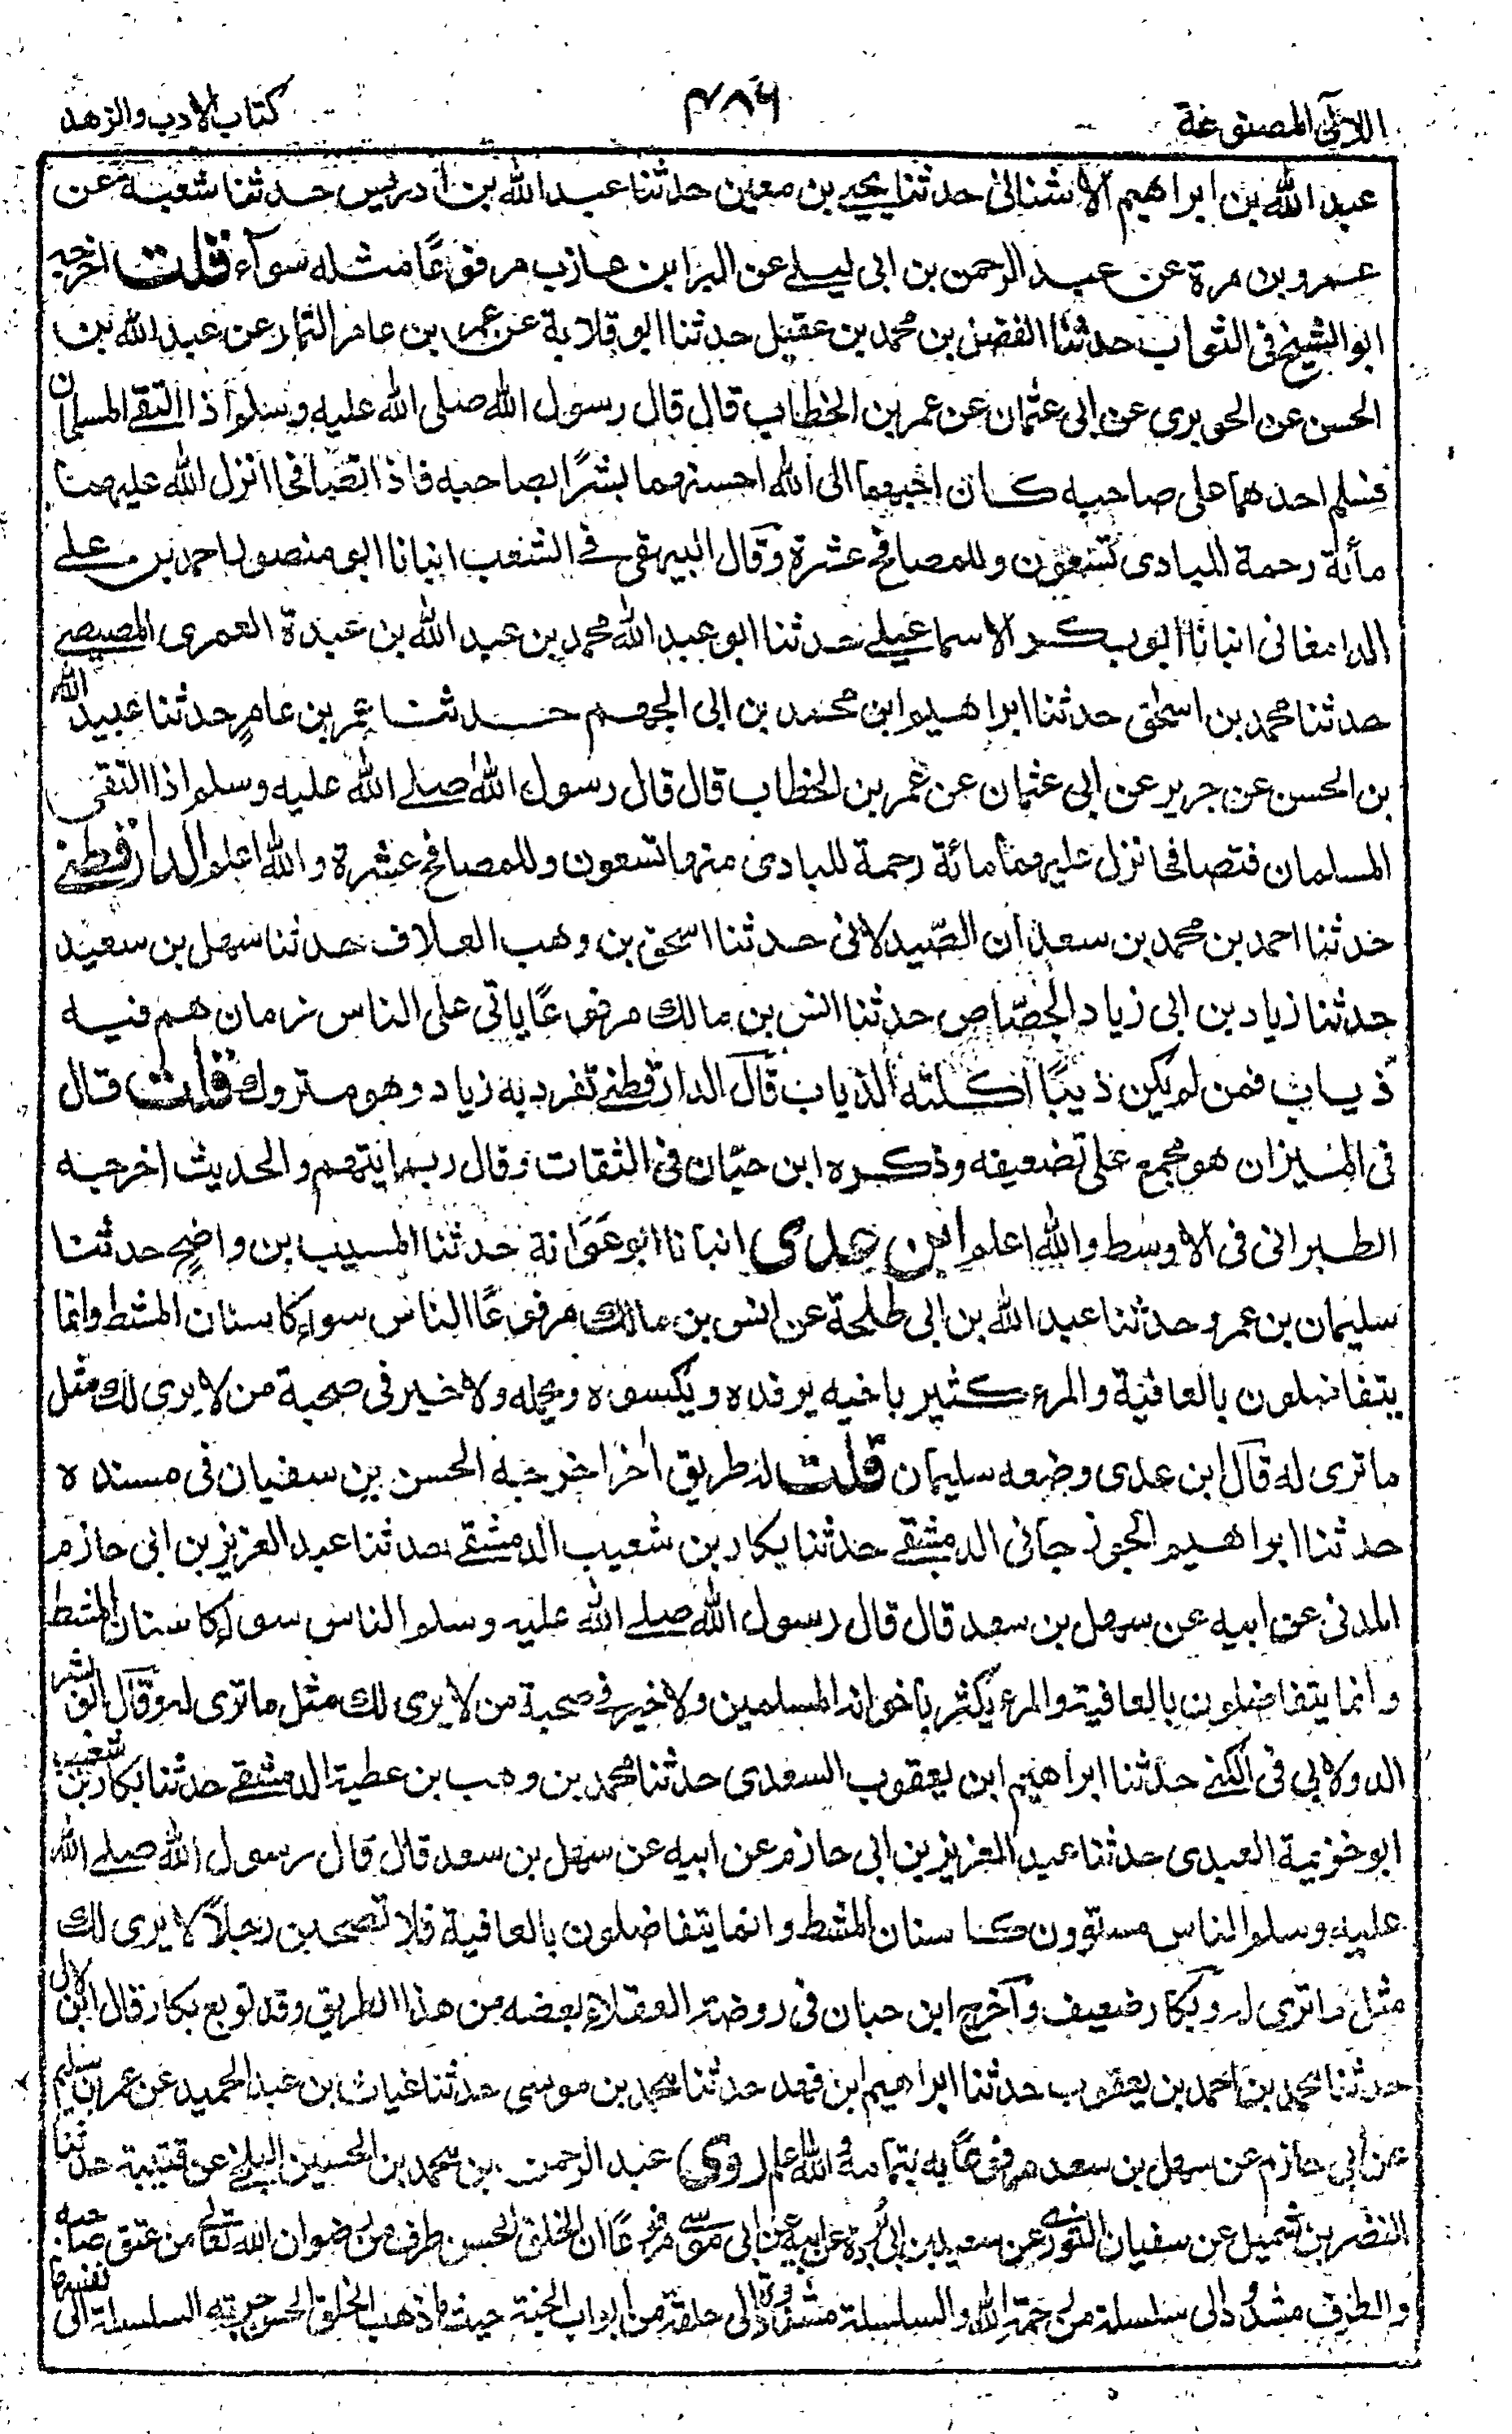 اللآلى المصنوعة
٤٨٦
كتاب الادب والزهد
عبد الله بن ابراهيم الاشنانى حدثنا يحيى بن معين حدثنا عبد الله بن ادريس حدثنا شعبة عن
عمرو بن مرة عن عبد الرحمن بن ابى ليلے عن البرا بن عازب مرفوعًا مثله سوآء قلت اخرجه
ابو الشيخ فى الثواب حدثنا الفضل بن محمد بن عقيل حدثنا ابو قلابة عن عمر بن عامر التمار عن عبيد الله بن
الحسن عن الحويرى عن ابى عثمان عن عمر بن الخطاب قال قال رسول الله صلى الله عليه وسلم اذا التقے المسلمان
فسلم احدهما على صاحبه كان احبهما الى الله احسنهما بشرًا بصاحبه فاذا تصافحا انزل الله عليهما
مأئة رحمة للبادى تسعون وللمصافح عشرة وقال البيهقى فے الشعب انبانا ابو منصور احمد بن علے
الدامغانى انبانا ابو بكر الاسماعيلے حدثنا ابو عبد الله محمد بن عبد الله بن عبدة العمرى المصيصے
حدثنا محمد بن اسحٰق حدثنا ابراهيم ابن محمد بن ابى الجهم حدثنا عمر بن عامرٍ حدثنا عبيد الله
بن الحسن عن جرير عن ابى عثمان عن عمر بن الخطاب قال قال رسول الله صلے الله عليه وسلم اذا التقى
المسلمان فتصافحا نزل عليهما مائة رحمة للبادى منها تسعون وللمصافح عشرة والله اعلم الدارقطنے
حدثنا احمد بن محمد بن سعدان الصّيدلانى حدثنا اسحق بن وهب العلاف حدثنا سهل بن سعيد
حدثنا زياد بن ابى زياد الجصّاص حدثنا انس بن مالك مرفوعًا ياتى على الناس زمان هم فيه
ذياب فمن لم يكن ذيبًا اكلته الذياب قال الدارقطنے تفرد به زياد وهو متروك قلت قال
فى الميزان هو مجمع على تضعيفه وذكره ابن حبّان فى الثقات وقال ربما يتهم والحديث اخرجه
الطبرانى فى الاوسط والله اعلم ابن عدى انبانا ابو عَوَانة حدثنا المسيب بن واضحٍ حدثنا
سليمان بن عمرو حدثنا عبد الله بن ابى طلحة عن انس بن مالك مرفوعًا الناس سواء كاسنان المشط وانما
يتفاضلون بالعافية والمرء كثير باخيه يرفده ويكسوه ويحمله ولا خير فى صحبة من لا يرى لك مثل
ما ترى له قال ابن عدى وضعه سليمان قلت له طريق اٰخر اخرجه الحسن بن سفيان فى مسنده
حدثنا ابراهيم الجوزجانى الدمشقے حدثنا بكار بن شعيب الدمشقے حدثنا عبد العزيز بن ابى حازم
المدنى عن ابيه عن سهل بن سعد قال قال رسول الله صلے الله عليه وسلم الناس سواء كاسنان المشط
وانما يتفاضلون بالعافية والمرء يكثر باخوانه المسلمين ولا خير فے صحبة من لا يرى لك مثل ما ترى له وقال ابو بشر
الدولابي فى الكنے حدثنا ابراهيم ابن يعقوب السعدى حدثنا محمد بن وهب بن عطية الدمشقے حدثنا بكار بن شعيب
ابو خزيمة العبدى حدثنا عبد العزيز بن ابى حازم عن ابيه عن سهل بن سعد قال قال رسول الله صلے الله
عليه وسلم الناس مستوون كاسنان المشط وانما يتفاضلون بالعافية فلا تصحبن رجلاً لا يرى لك
مثل ما ترى له وبكار ضعيف وآخرج ابن حبان فى روضة العقلاء بعضه من هذا الطريق وقد توبع بكار قال ابن لال
حدثنا محمد بن احمد بن يعقوب حدثنا ابراهيم ابن فهد حدثنا محمد بن موسى حدثنا غياث بن عبد الحميد عن عمر بن سليم
عن ابى حازم عن سهل بن سعد مرفوعًا به بتمامه والله اعلم (روى) عبد الرحمن بن محمد بن الحسين البلخے عن قتيبة حدثنا
النضر بن شميل عن سفيان الثورى عن سعيد بن ابى بردة عن ابيه عن ابى موسى مرفوعًا ان الخلق الحسن طرف من رضوان الله تعالى من عنق صاحبه
والطرف مشدود الى سلسلة من رحمة الله والسلسلة مشدودة الى حلقة من ابواب الجنة حيث ما ذهب الخلق الحسن جرته السلسلة الى نفسها